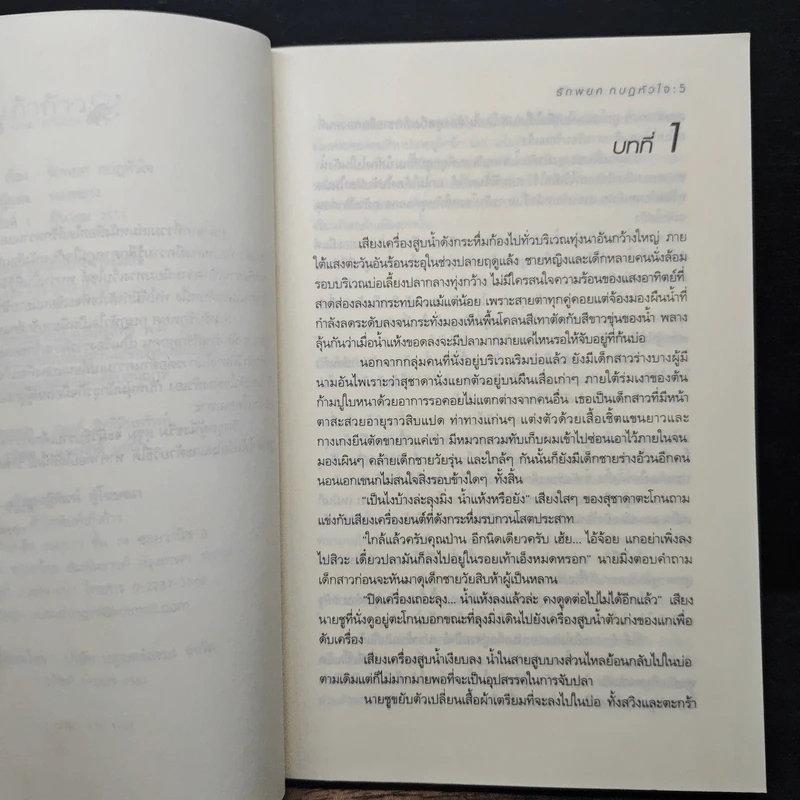 รักพยศ กบฏหัวใจ : 5
บทที่ 1
เสียงเครื่องสูบน้ำดังกระหึ่มก้องไปทั่วบริเวณทุ่งนาอันกว้างใหญ่ ภาย
ใต้แสงตะวันอันร้อนระอุในช่วงปลายฤดูแล้ง ชายหญิงและเด็กหลายคนนั่งล้อม
รอบบริเวณบ่อเลี้ยงปลากลางทุ่งกว้าง ไม่มีใครสนใจความร้อนของแสงอาทิตย์ที่
สาดส่องลงมากระทบผิวแม้แต่น้อย เพราะสายตาทุกคู่คอยแต่จ้องมองผืนน้ำที่
กำลังลดระดับลงจนกระทั่งมองเห็นพื้นโคลนสีเทาตัดกับสีขาวขุ่นของน้ำ พลาง
ลุ้นกันว่าเมื่อน้ำแห้งขอดลงจะมีปลามากมายแค่ไหนรอให้จับอยู่ที่ก้นบ่อ
นอกจากกลุ่มคนที่นั่งอยู่บริเวณริมบ่อแล้ว ยังมีเด็กสาวร่างบางผู้มี
นามอันไพเราะว่าสุชาดานั่งแยกตัวอยู่บนผืนเสื่อเก่าๆ ภายใต้ร่มเงาของต้น
ก้ามปูใบหนาด้วยอาการรอคอยไม่แตกต่างจากคนอื่น เธอเป็นเด็กสาวที่มีหน้า
ตาสะสวยอายุราวสิบแปด ท่าทางแก่นๆ แต่งตัวด้วยเสื้อเชิ้ตแขนยาวและ
กางเกงยีนตัดขายาวแค่เข่า มีหมวกสวมทับเก็บผมเข้าไปซ่อนเอาไว้ภายในจน
มองเผินๆ คล้ายเด็กชายวัยรุ่น และใกล้ๆ กันนั้นก็ยังมีเด็กชายร่างอ้วนอีกคน
นอนเอกเขนกไม่สนใจสิ่งรอบข้างใดๆ ทั้งสิ้น
"เป็นไงบ้างล่ะลุงมิ่ง น้ำแห้งหรือยัง" เสียงใสๆ ของสุชาดาตะโกนถาม
แข่งกับเสียงเครื่องยนต์ที่ดังกระหึ่มรบกวนโสตประสาท
"ใกล้แล้วครับคุณป่าน อีกนิดเดียวครับ เฮ้ย... ไอ้จ้อย แกอย่าเพิ่งลง
ไปสิวะ เดี๋ยวปลามันก็ลงไปอยู่ในรอยเท้าเอ็งหมดหรอก" นายมิ่งตอบคำถาม
เด็กสาวก่อนจะหันมาดุเด็กชายวัยสิบห้าผู้เป็นหลาน
"ปิดเครื่องเถอะลุง... น้ำแห้งลงแล้วล่ะ คงดูดต่อไปไม่ได้อีกแล้ว" เสียง
นายชูที่นั่งดูอยู่ตะโกนบอกขณะที่ลุงมิ่งเดินไปยังเครื่องสูบน้ำตัวเก่งของแกเพื่อ
ดับเครื่อง
เสียงเครื่องสูบน้ำเงียบลง น้ำในสายสูบบางส่วนไหลย้อนกลับไปในบ่อ
ตามเดิมแต่ก็ไม่มากมายพอที่จะเป็นอุปสรรคในการจับปลา
นายชูขยับตัวเปลี่ยนเสื้อผ้าเตรียมที่จะลงไปในบ่อ ทั้งสวิงและตะกร้า